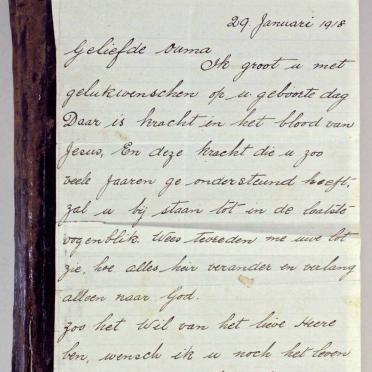 29. Januari 1918
Geliefde Ouma
Ik groot u met
gelukwenschen op u geboorte dag
Daar is kracht in het blood van
Jesus, En deze kracht die u zoo
veele Jaaren ge ondersteund heeft,
zal u bij staan tot in de laatste
oogenblik. Wees tevreden me uwe lot
zie, hoe alles hier verander en verlang
alleen naar God.
zoo het Wil van het lieve Heere
ben, wensch ik u noch het leven